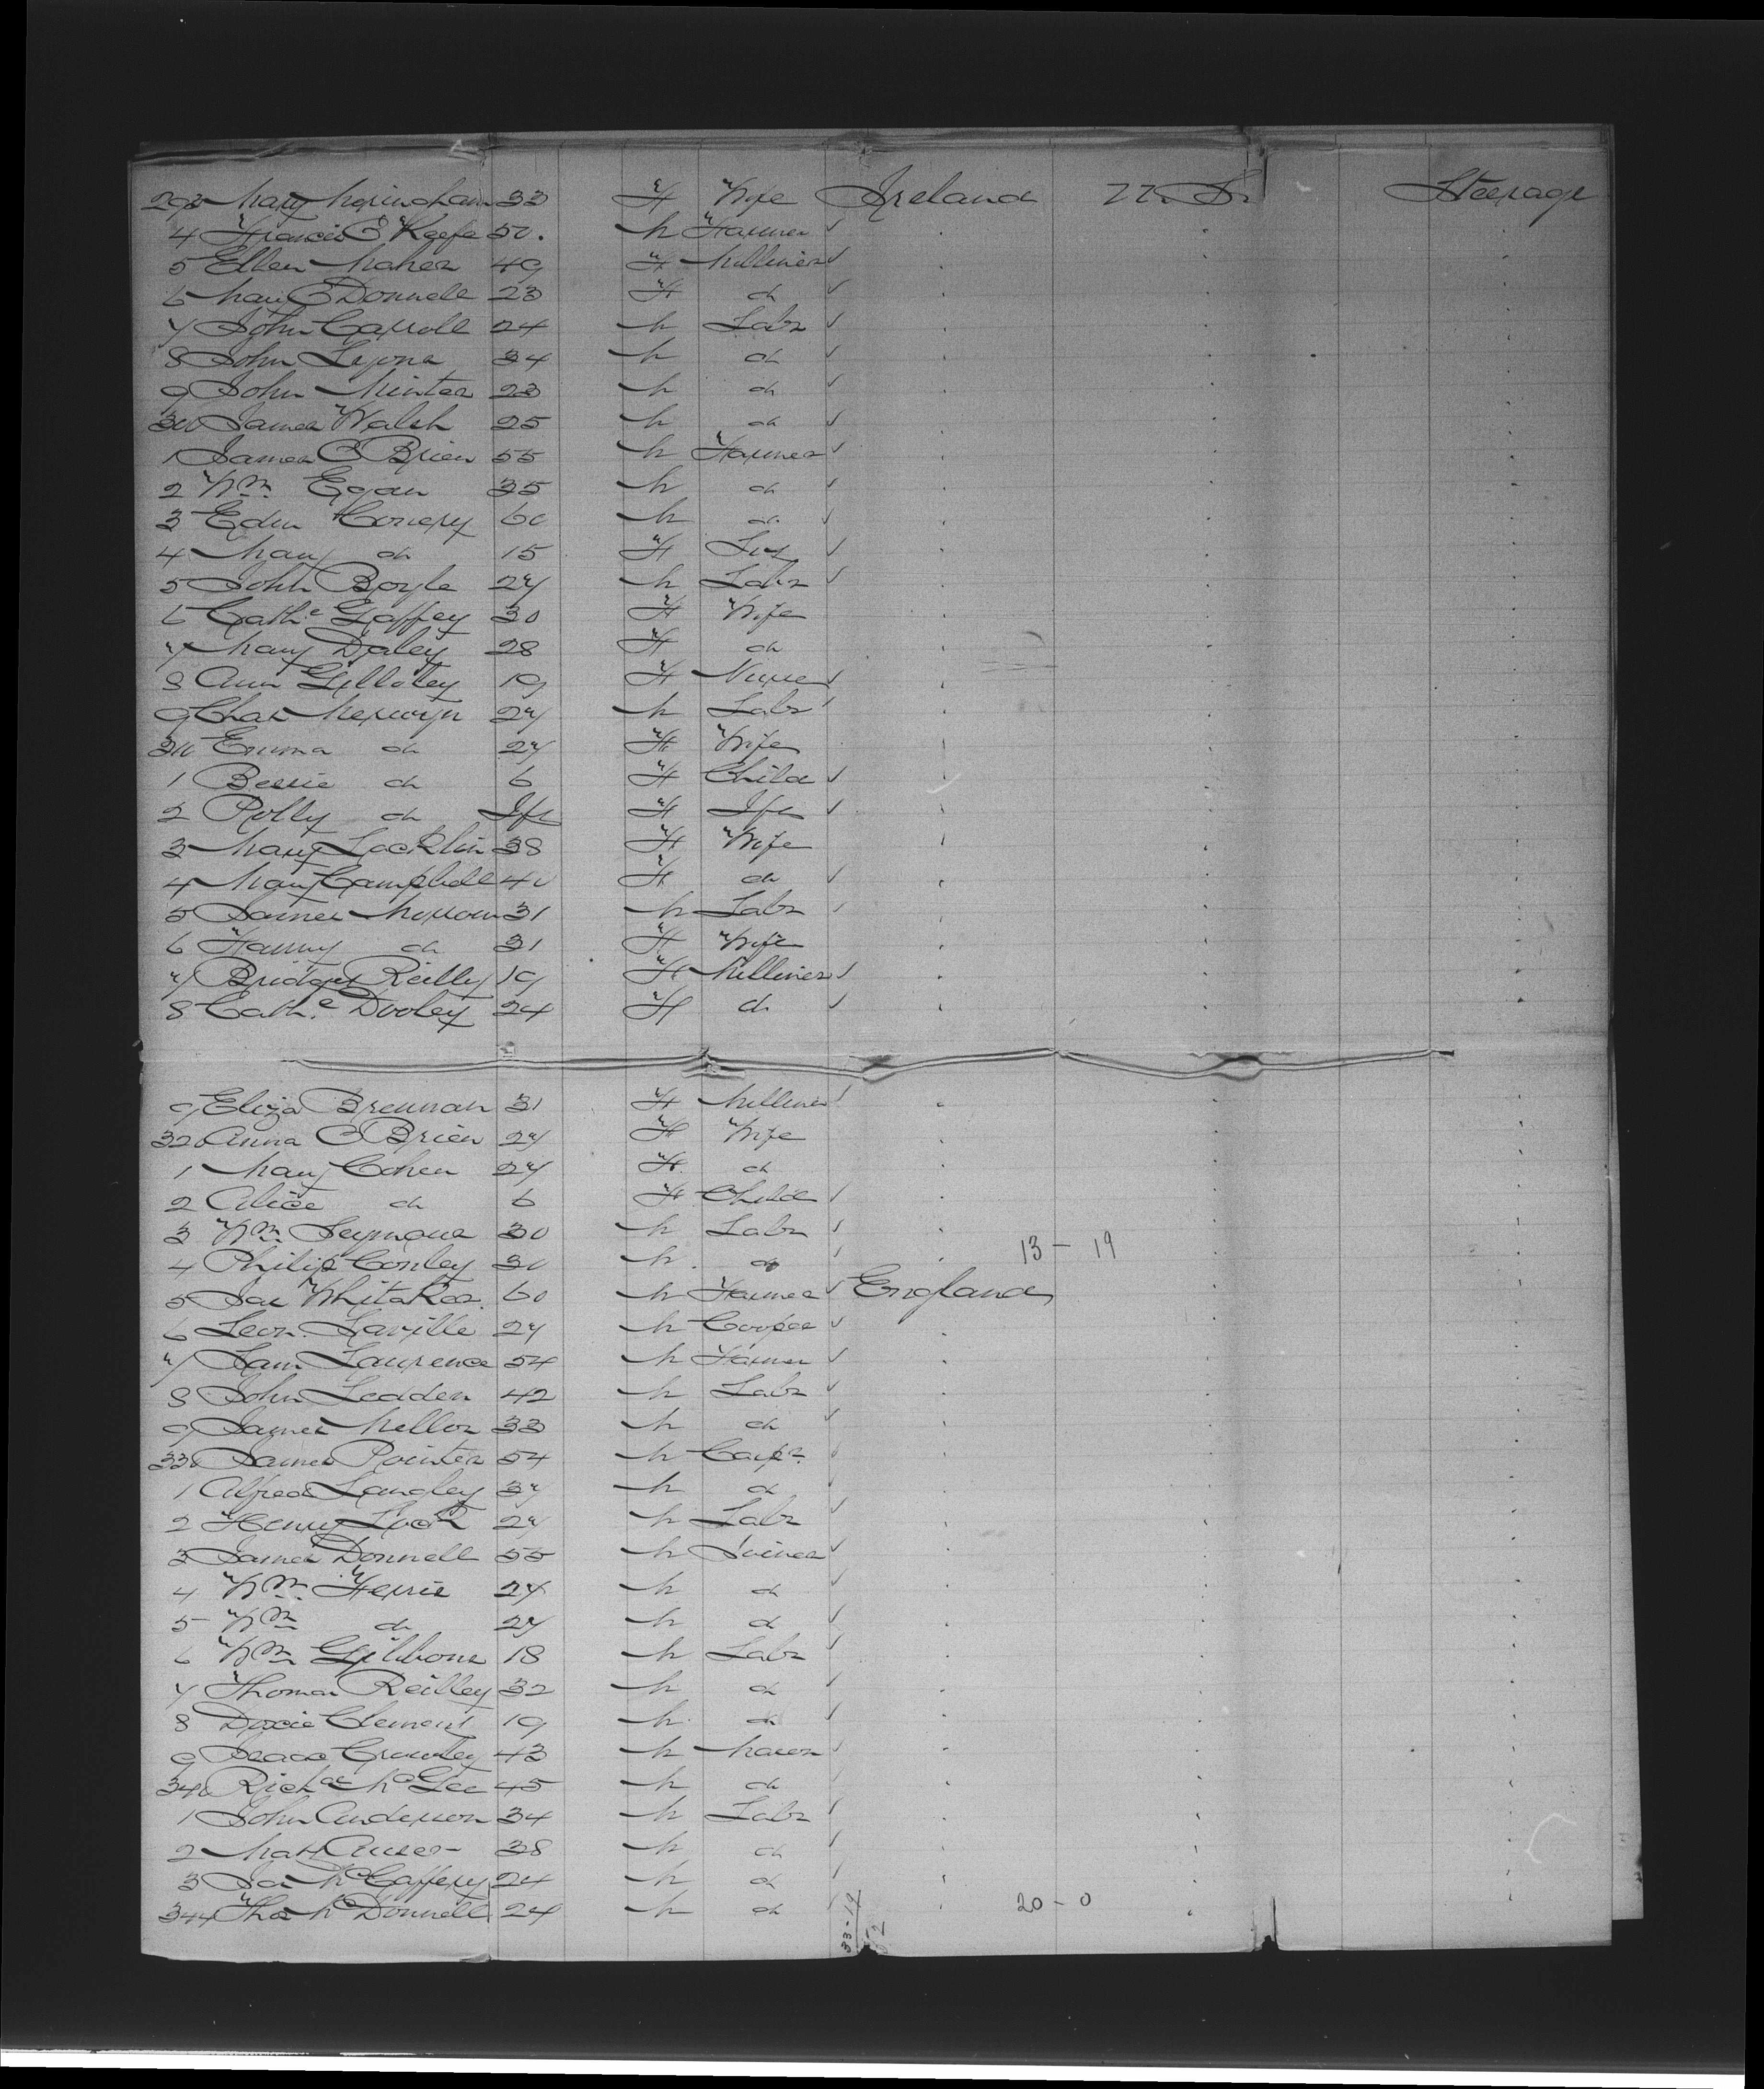 293 Mary 33 F Wife Ireland U. S. Steerage
4 Francis O'Keefe 50. M Farmer ✓
5 Ellen Maher 49 F Milliner ✓
6 Mary O'Donnell 23 F do ✓
7 John Carroll 24 M Labr ✓
8 John Lyons 34 M do ✓
9 John Minter 23 M do ✓
300 James Walsh 25 M do ✓
1 James O'Brien 55 M Farmer ✓
2 Wm Egan 35 M do ✓
3 Edw Conery 60 M do ✓
4 Mary do 15 F ✓
5 John Boyle 27 M Labr ✓
6 Cathe Gaffey 30 F Wife
7 Mary Daley 28 F do
8 Ann 19 F Nurse ✓
9 Chas Merwyn 27 M Labr ✓
310 Emma do 27 F Wife
1 Bessie do 6 F Child ✓
2 Polly do Inft F Inft ✓
3 Mary Locklin 38 F Wife
4 Mary Campbell 40 F do ✓
5 James Morrow 31 M Labr ✓
6 Fanny do 31 F Wife
7 Bridget Reilly 19 F Milliner ✓
8 Cathe Dooley 24 F do ✓
9 Eliza Brennan 31 F Milliner ✓
320 Anna O'Brien 27 F Wife
1 Mary Cohen 27 F. do
2 Alice do 6 F Child ✓
3 Wm Seymour 30 M Labr ✓
4 Philip Conley 30 M. do ✓ 13 - 19
5 Jas Whitaker. 60 M Farmer ✓ England
6 Leon. Saville 27 M Cooper ✓
7 Sam Laurence 54 M Farmer ✓
8 John Leaden 42 M Labr ✓
9 James Mellor 33 M do ✓
330 James Pointer 54 M Carpr ✓
1 Alfred Langley 37 M do
2 Henry Lock 27 M Labr ✓
3 James Donnell 55 M Joiner ✓
4 Wm. Ferrie 27 M do ✓
5 Wm do 27 M do ✓
6 Wm Gibbons 18 M Labr ✓
7 Thomas Reilley 32 M do ✓
8 Clement 19 M. do ✓
9 Isaac Crowley 43 M Mason ✓
340 Richd McGee 45 M do ✓
1 John Anderson 34 M Labr ✓
2 Matt 38 M do ✓
3 Jas McCaffery 24 M do ✓
344 Thos McDonnell 24 M do ✓ 20 - 0
33-19
52